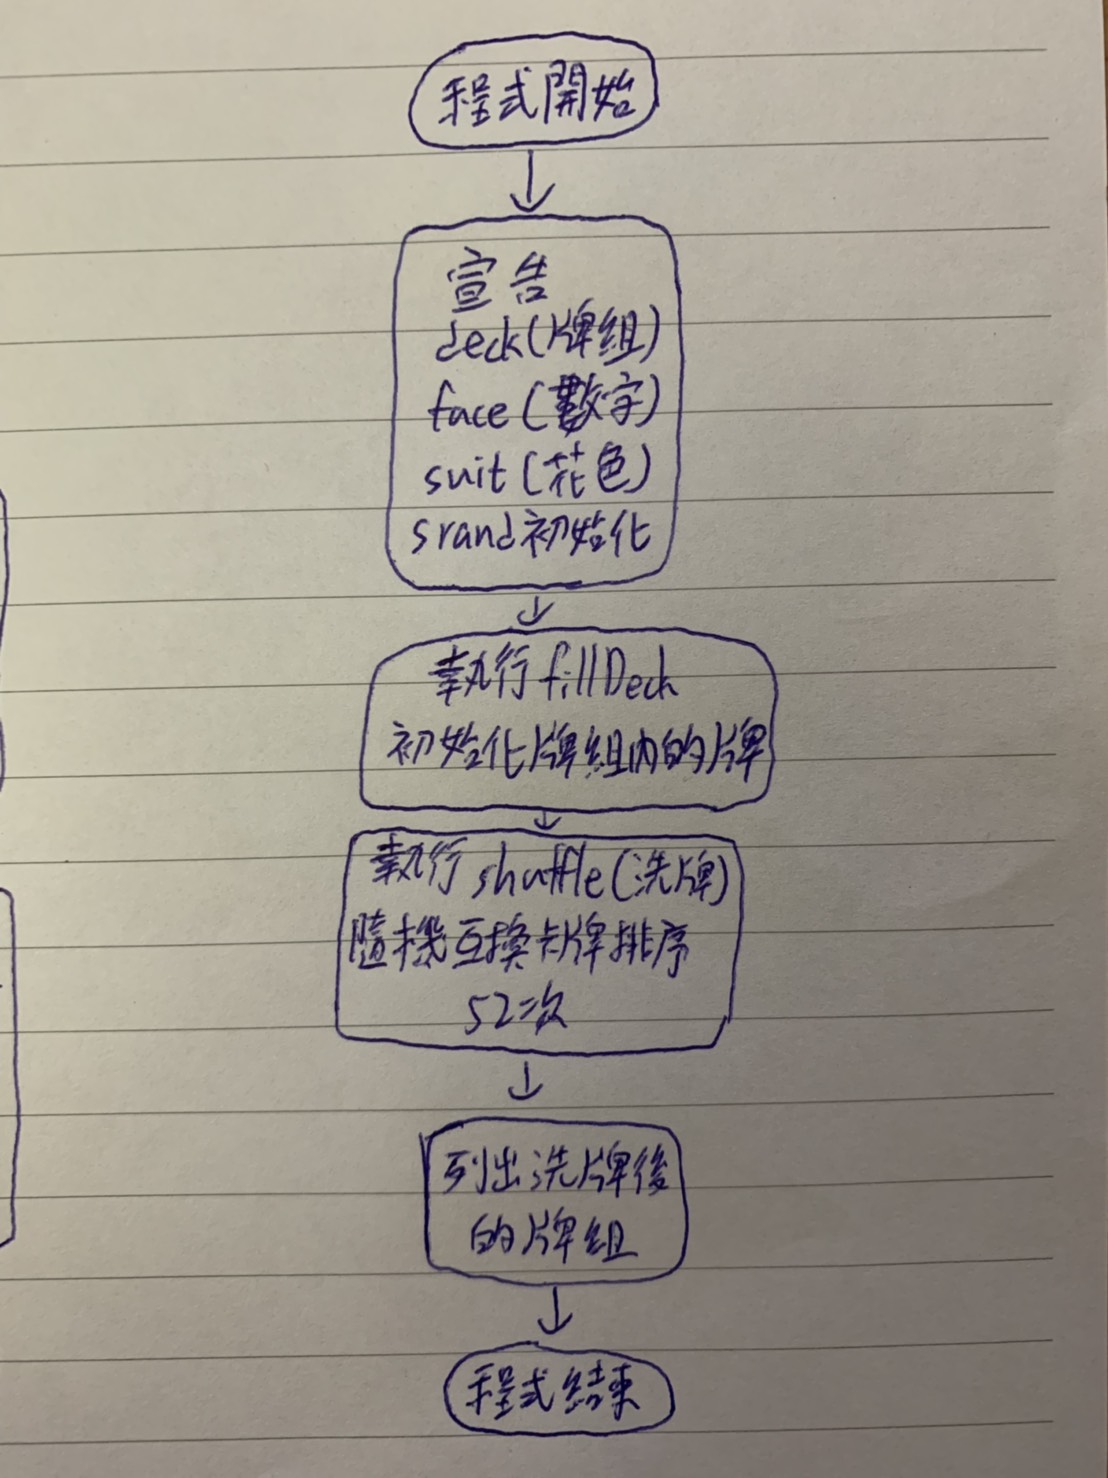 程式開始
宣告
deck(牌組)
face(數字)
suit(花色)
srand初始化
執行fillDeck
初始化牌組內的牌
執行shuffle(洗牌)
隨機互換卡牌排序
52次
列出洗牌後
的牌組
程式結束